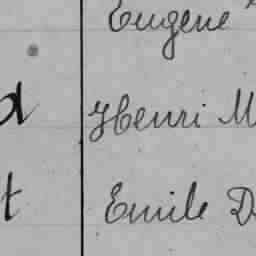 Eugene
d Henri M
t Emile D